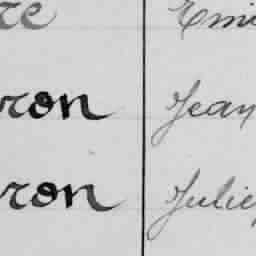 re Emi
ron Jean
ron Julie